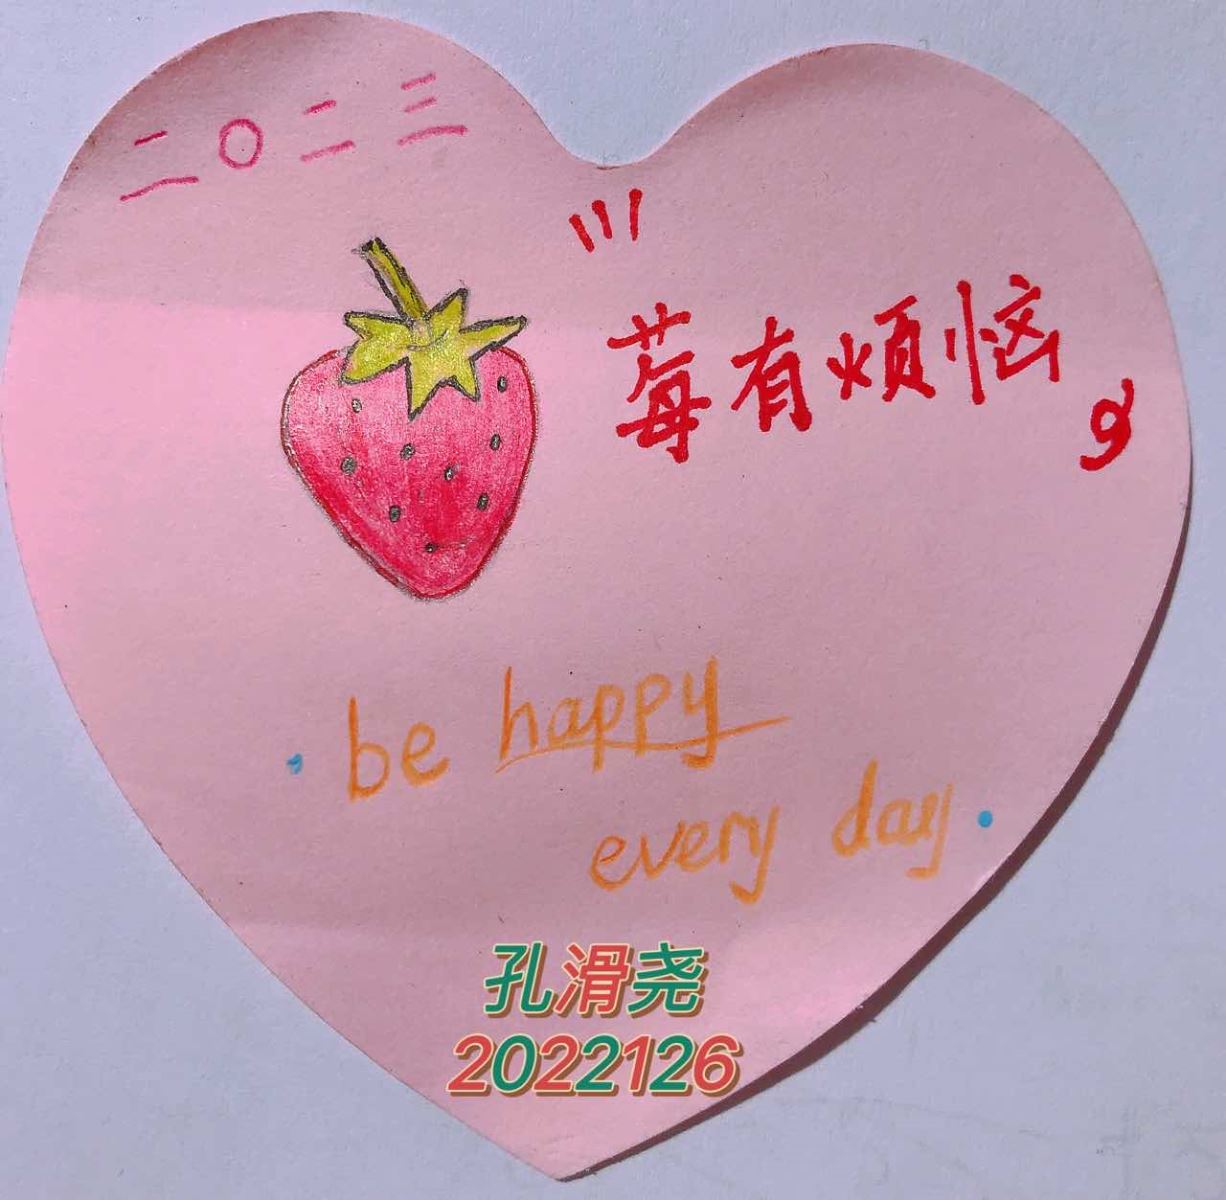 二〇二三
莓有烦恼
be happy
every day
孔滑尧
2022126